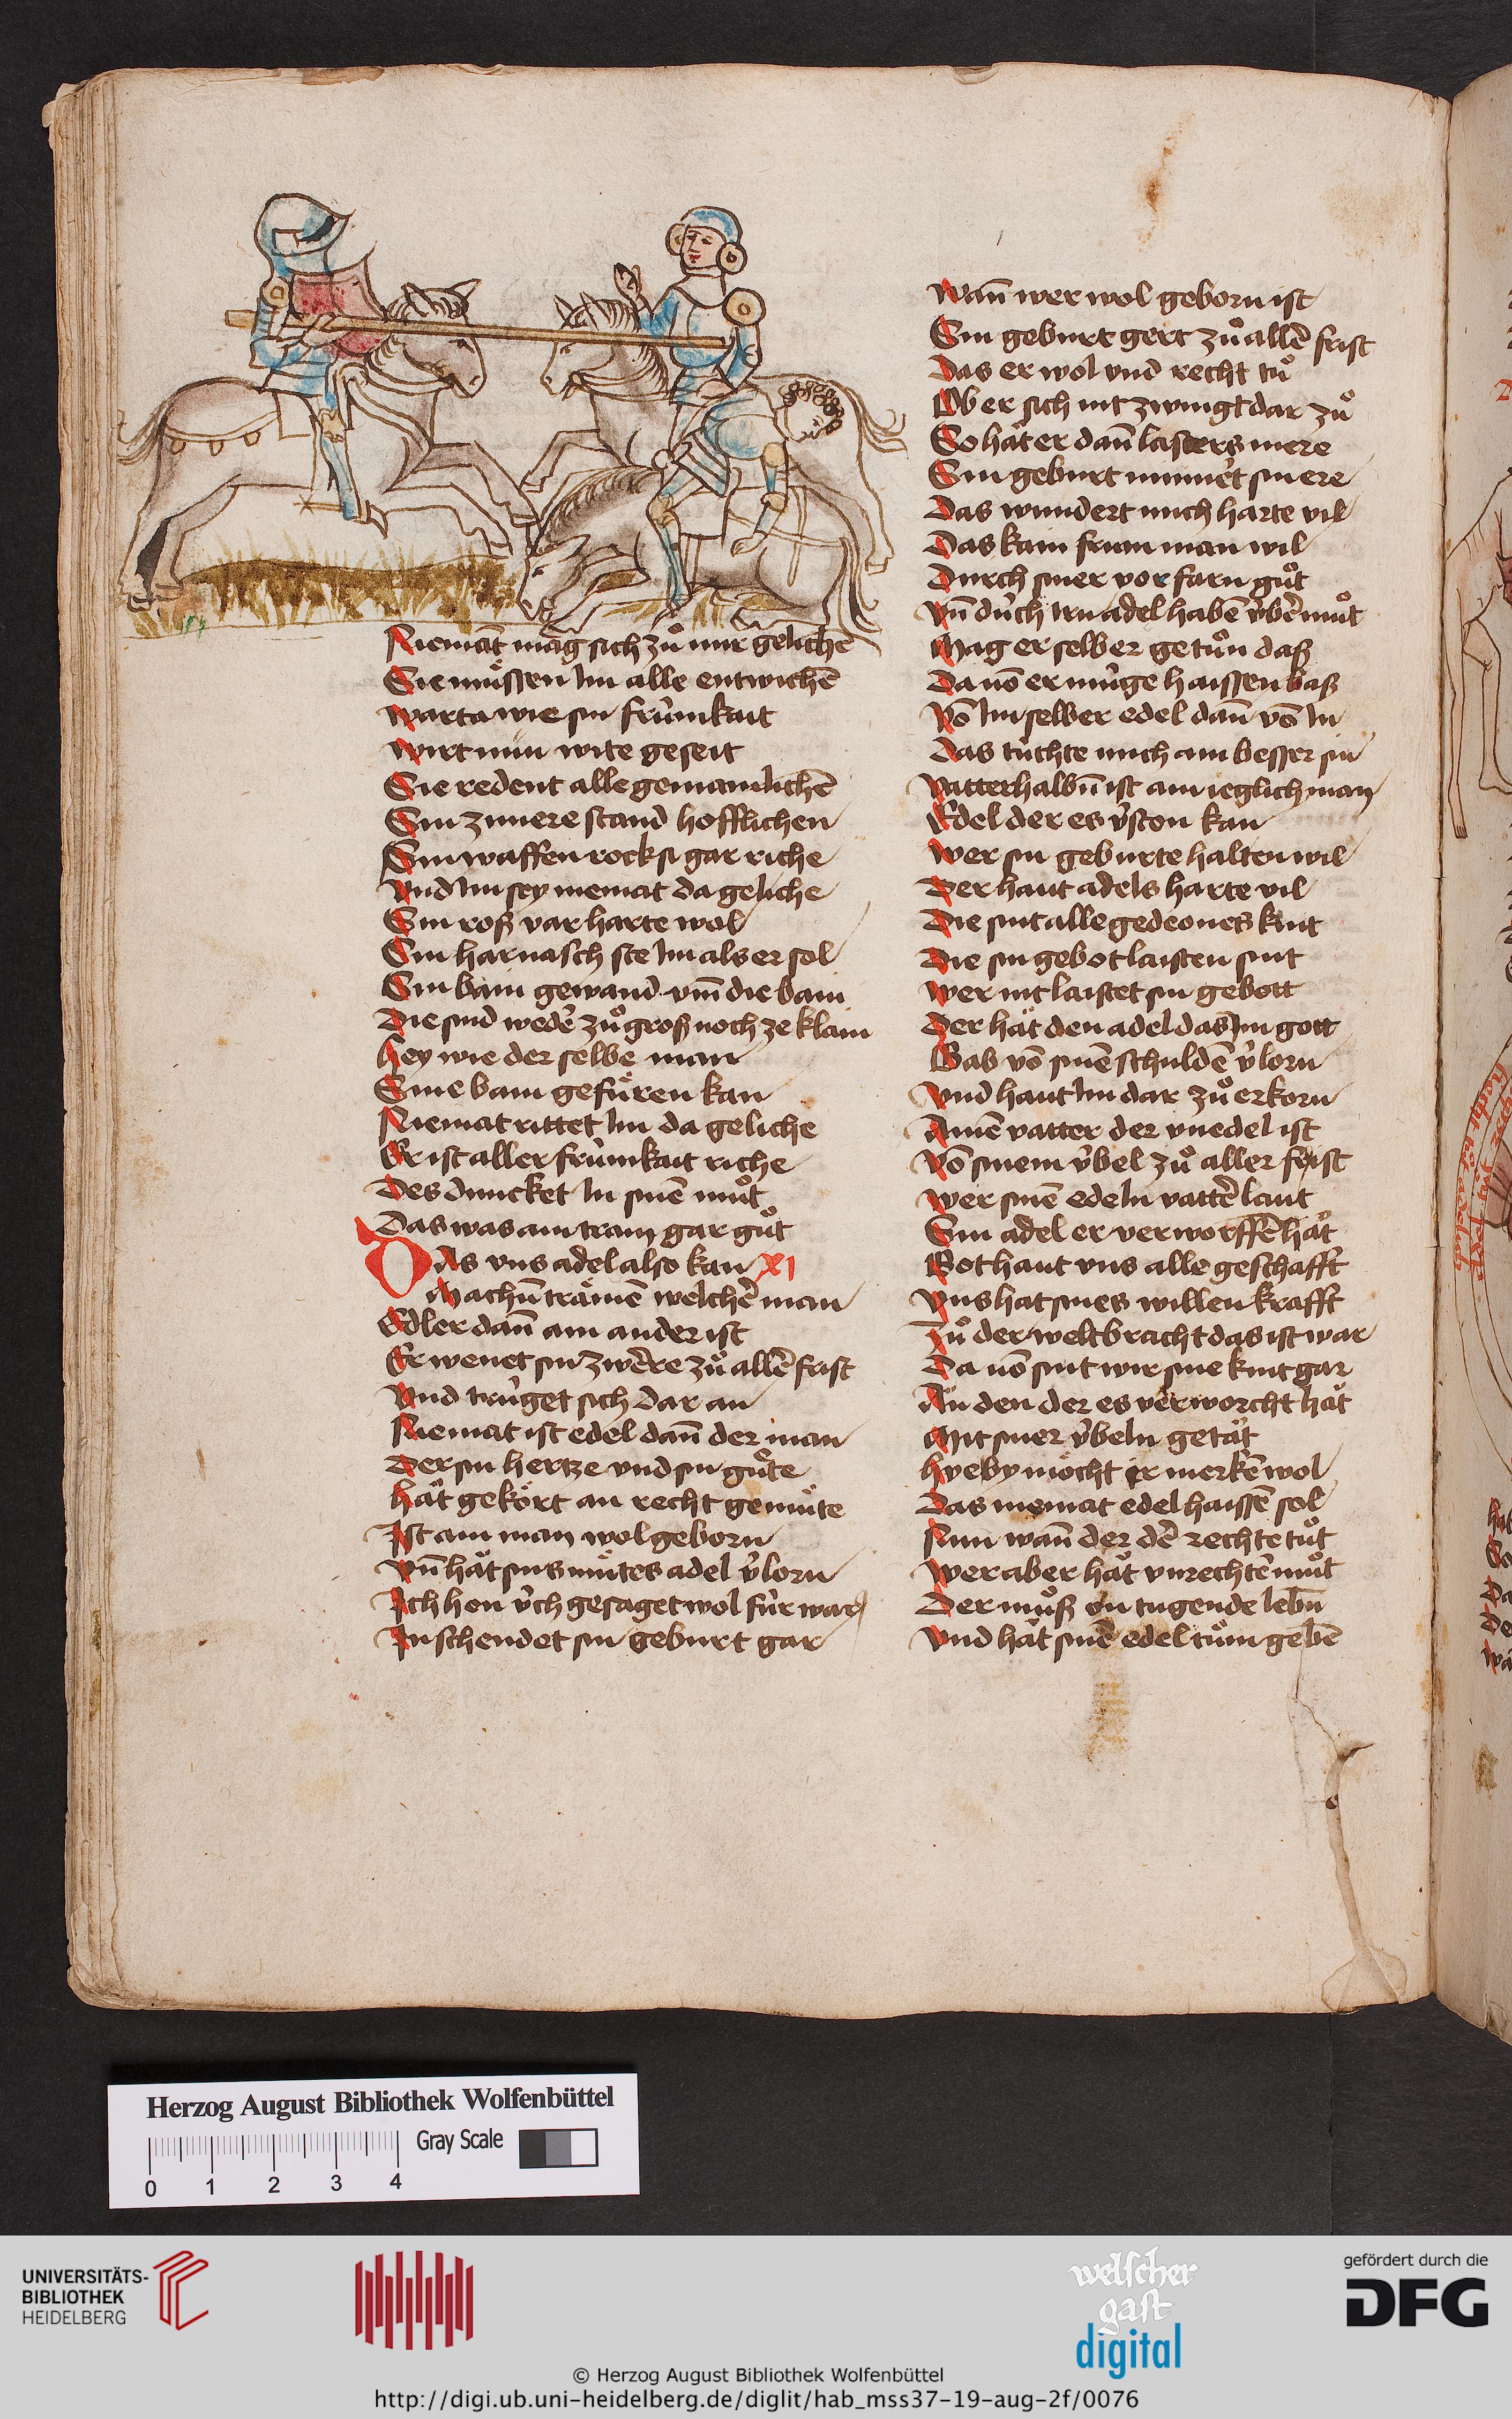 Niemāt mag sich zuͦ mir gelichē
Sie muͤssen Im alle entwichē
warta wie sin frümkait
wirt nun wite geseit
Sie redent alle gemainlichē
Sin zimere stand hofflichen
Sin waffen rock si gar riche
Vnd Im sey niemat da geliche
Sin roß var harte wol
Sin harnasch ste Im als er sol
Sin bain gewand vm̄ die bain
Die sind wedˀ zuͦ groß noch ze klain
hey wie der selbe man
Sine bain gefuͤren kan
Niemat rittet Im da geliche
Er ist aller frümkait riche
Des duncket In sinē muͦt
Das was ain tram gar guͦt
Das vns adel also kan XI
Machn̄ trämē welchˀ man
Edler dan̄ ain ander ist
Er wenet sin zwere zuͦ allē frist
Vnd trüget sich dar an
Niemat ist edel dan̄ der man
Der sin hertze vnd sin guͤte
hät gekört an recht gemuͤte
Ist ain man wol geborn
Vn̄ hät sins muͤtes adel v̉lorn
Ich hon v̈ch gesaget wol für war
In schendet sin geburt gar
Wan̄ wer wol geborn ist
Sin geburt gert zuͦ allē frist
Das er wol vnd recht tuͦ
Ob er sich nit zwingt dar zuͦ
So hät er dan̄ lasters mere
Sin geburt minnert sin ere
Das wundert mich harte vil
Das kain frum man wil
Durch siner vorfarn guͦt
Vn̄ durch irn adel habē v̈bˀmuͦt
Mag er selber getuͦn das
Da vō er müge haissen bas
Vō Im selber edel dan̄ vō In
Das tüchte mich ain besser sin
Vatterhalbn̄ ist ain ieglich man
Edel der es v̉ston kan
Wer sin geburte halten wil
Der haut adels harte vil
Die sint alle gedeones kint
Die sin gebot laisten sint
Wer nit laistet sin gebott
Der hät den adel das Im gott
Gab vō sinē schuldē v̉lorn
Vnd haut Im dar zuͦ erkorn
Ainē vatter der vnedel ist
Vō sinem v̈bel zuͦ aller frist
Wer sinē edeln vattˀ laut
Sin adel er verworffē hät
Got haut vns alle geschafft
Vns hat sines willen krafft
Zuͦ der welt bracht das ist war
Da vō sint wir sine kint gar
An den der es verworcht hät
Mit siner v̈beln getät
hye by möcht ir merkē wol
Das niemat edel haissē sol
Nun wan̄ der dē rechte tuͦt
Wer aber hät vnrechtē muͦt
Der muͦß on tugende lebn̄
Vnd hät sinē edeltuͦm gebē
Herzog August Bibliothek Wolfenbüttel
Gray Scale
0 1 2 3 4
UNIVERSITÄTS-
BIBLIOTHEK
HEIDELBERG
welscher
gast
digital
gefördert durch die
DFG
© Herzog August Bibliothek Wolfenbüttel
http://digi.ub.uni-heidelberg.de/diglit/hab_mss37-19-aug-2f/0076